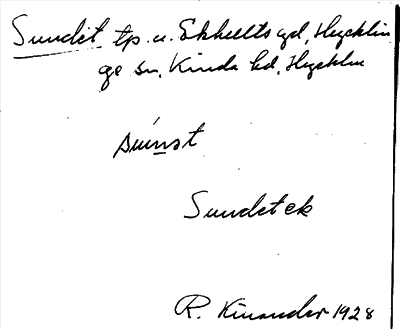 Sundet tp. u. Ekhults gd, Hycklin
ge sn, Kinda hd, Hycklin
sún̲nət
Sundet ek
R. Kinander 1928